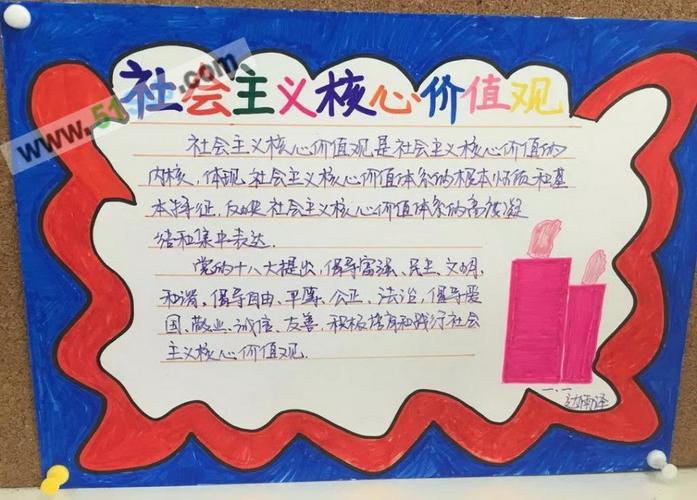 社会主义核心价值观
社会主义核心价值观是社会主义核心价值的
内核，体现社会主义核心价值体系的根本性质和基
本特征，反映社会主义核心价值体系的高度凝
结和集中表达.
党的十八大提出，倡导富强、民主、文明、
和谐，倡导自由、平等、公正、法治，倡导爱
国、敬业、诚信、友善，积极培育和践行社会
主义核心价值观.
www.51
.com